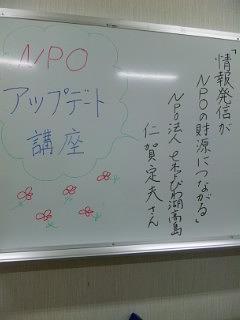 NPO
アップデート
講座
「情報発信が
NPOの財源につながる」
NPO法人
びわ湖高島
仁賀定夫さん